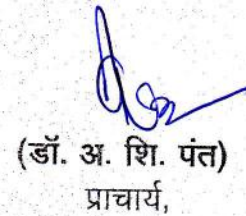 (डॉ. अ. शि. पंत)
प्राचार्य,